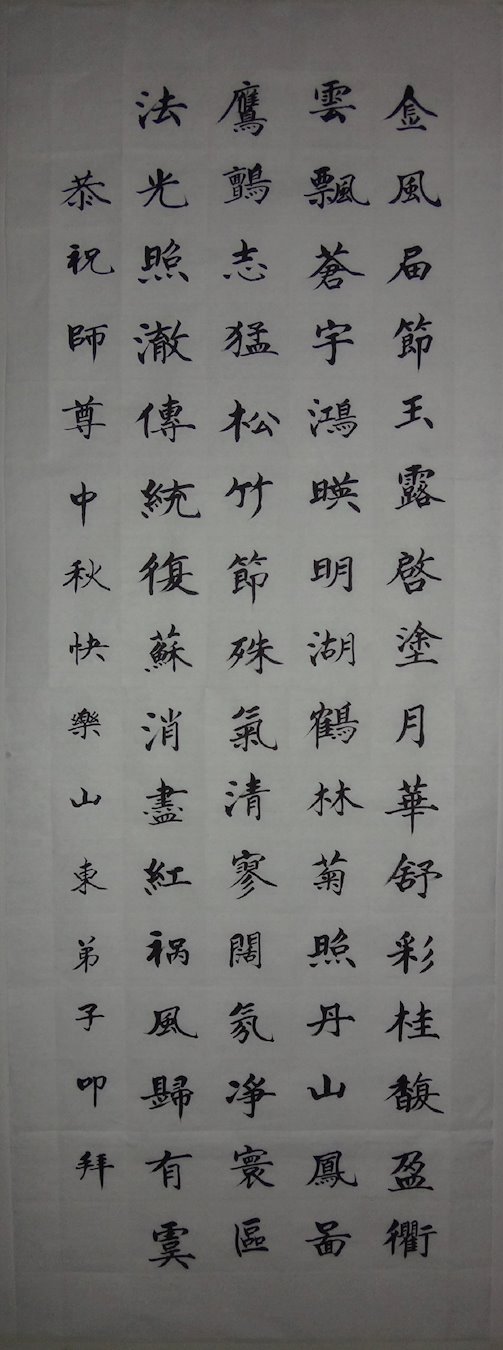 金風届節玉露啓塗月華舒彩桂馥盈衢
雲飄蒼宇鴻暎明湖鶴林菊照丹山鳳啚
鷹鸇志猛松竹節殊氣清寥闊氛凈寰區
法光照澈傳統復蘇消盡紅禍風歸有虞
恭祝師尊中秋快樂山東弟子叩拜